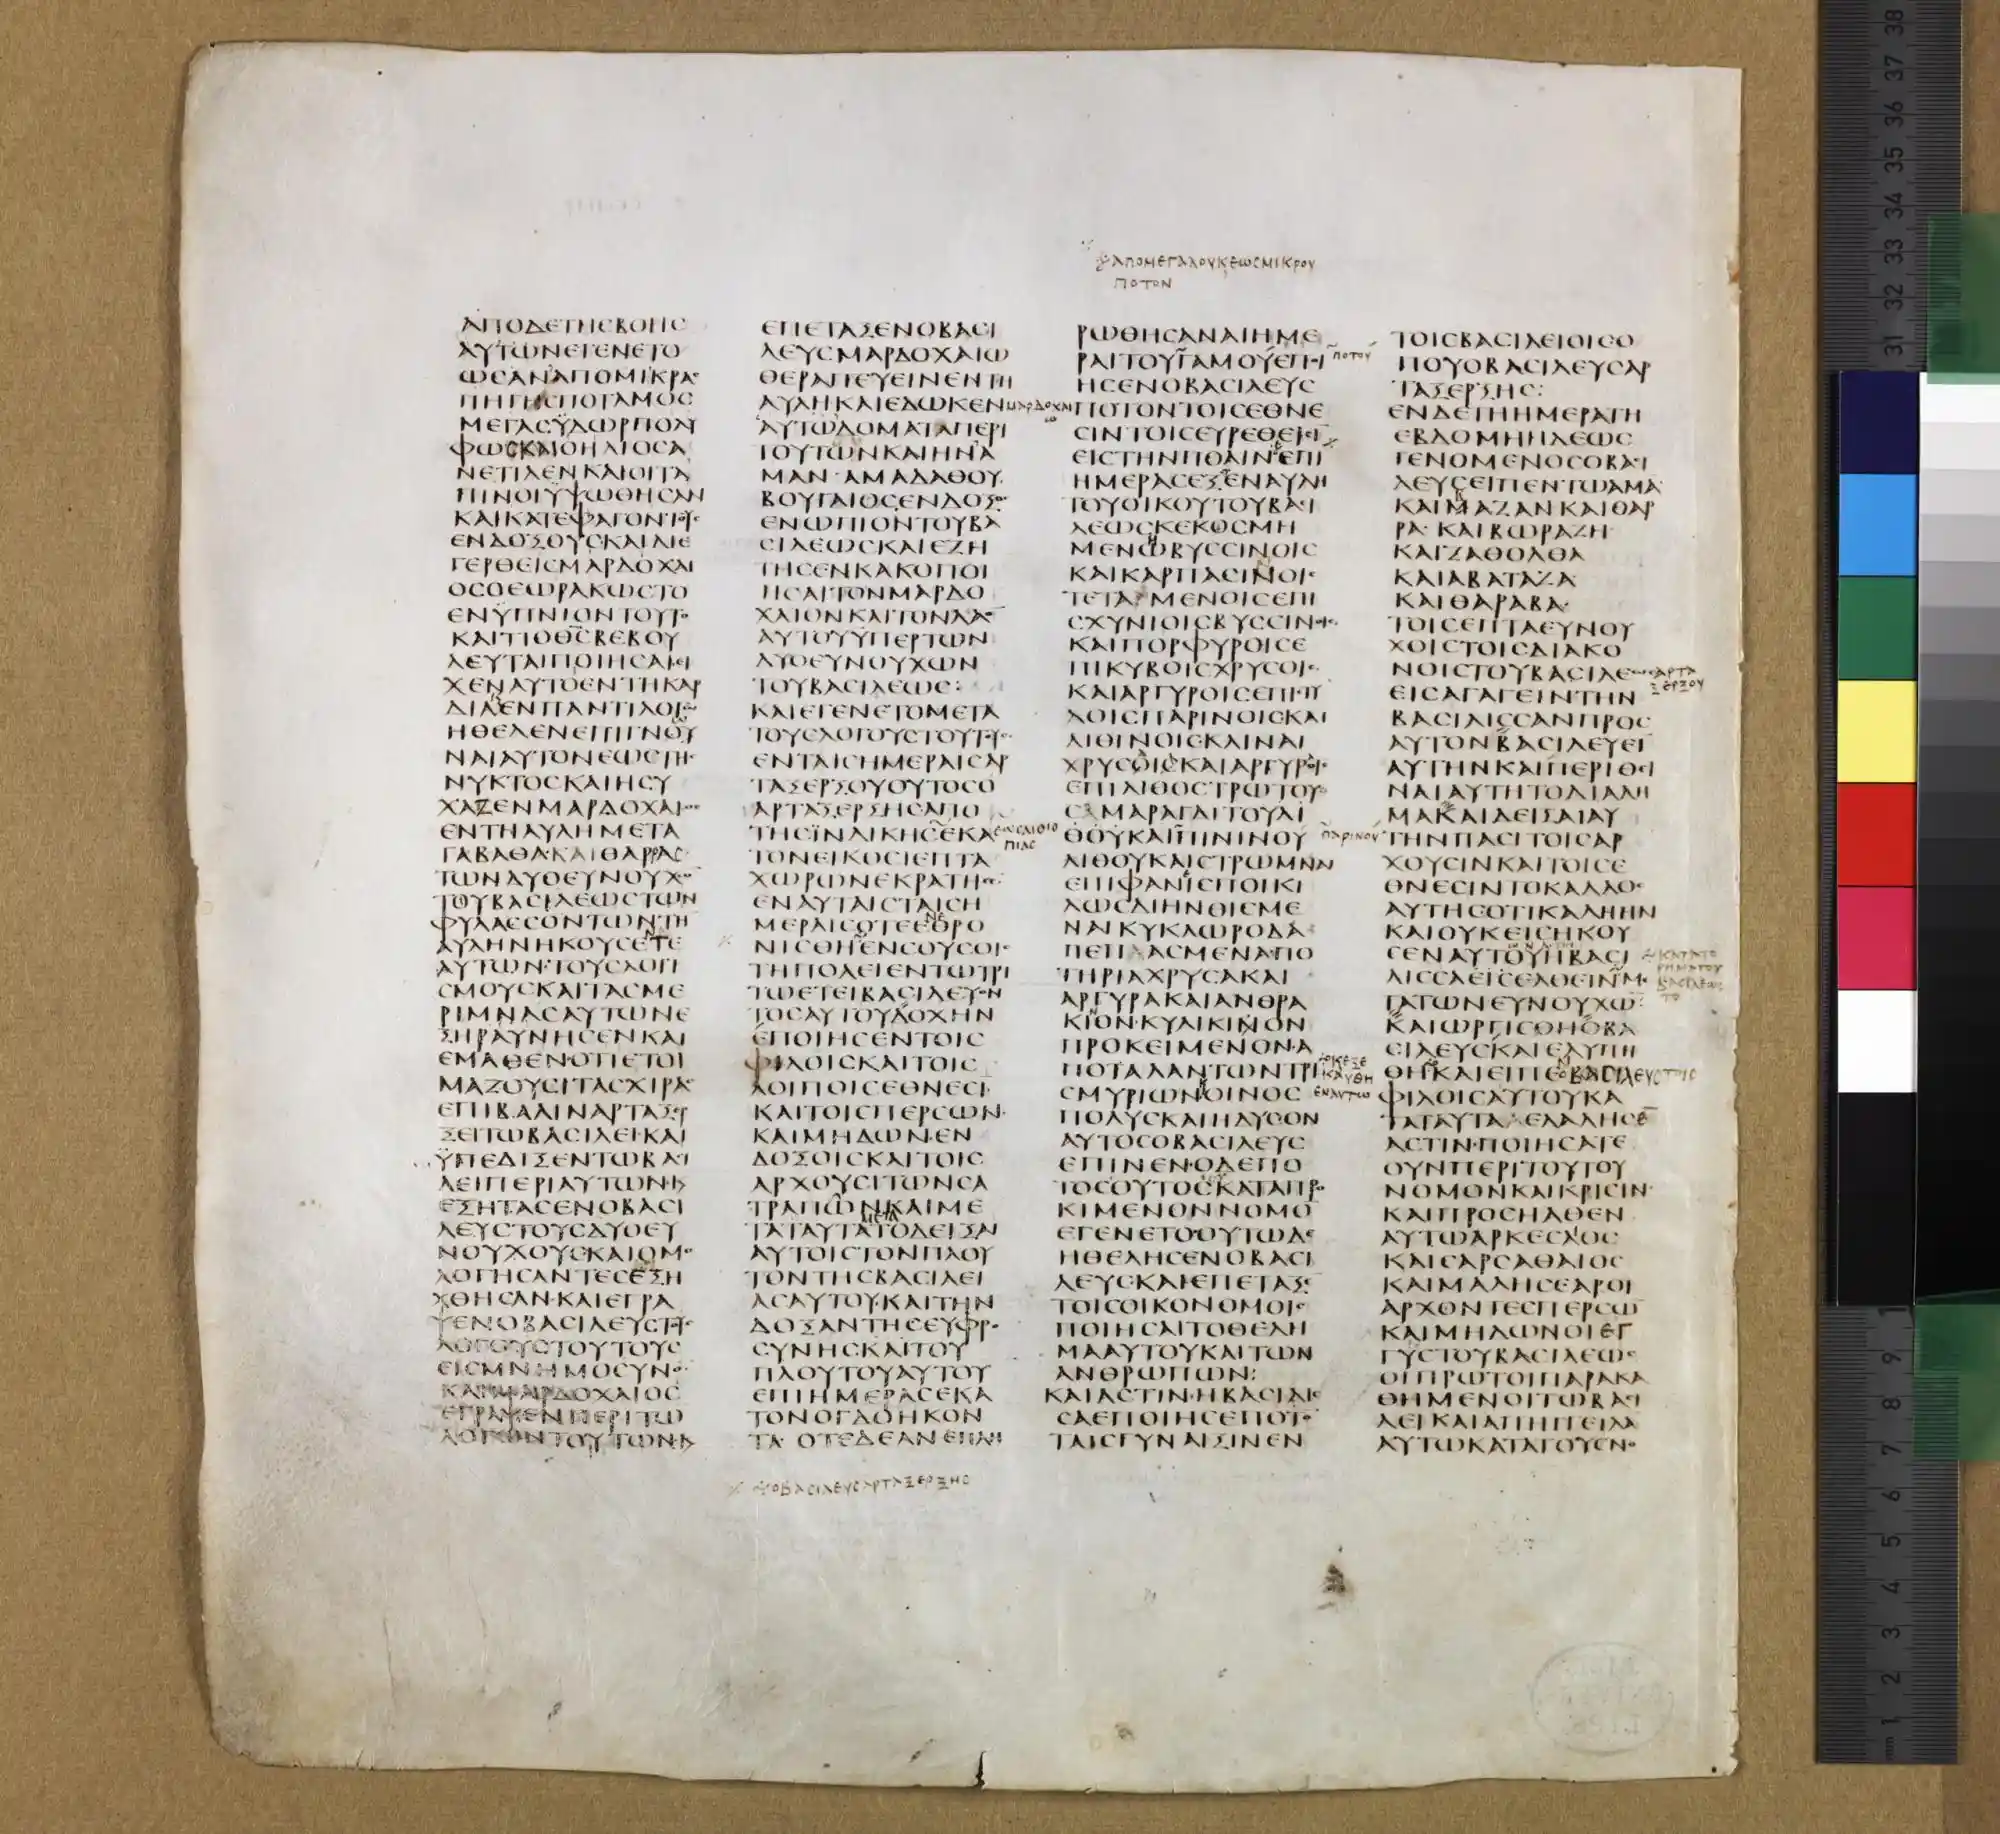 ⁘ ἀπομεγαλουκεωςμικρου
ποτον
ΑΠΟΔΕΤΗCΒΟΗC
ΑΥΤΩΝΕΓΕΝΕΤΟ
ΩCΑΝΑΠΟΜΙΚΡΑ
ΠΗΓΗCΠΟΤΑΜΟC
ΜΕΓΑCΫΔΩΡΠΟΛΥ
ΦΩCΚΑΙΟΗΛΙΟCΑ
ΝΕΤΙΛΕΝΚΑΙΟΙΤΑ
ΠΙΝΟΙΫΨΩΘΗCΑΝ
ΚΑΙΚΑΤΕΦΑΓΟΝΤΟΥC
ΕΝΔΟΞΟΥCΚΑΙΔΙΕ
ΓΕΡΘΕΙCΜΑΡΔΟΧΑΙ
ΟCΟΕΩΡΑΚΩCΤΟ
ΕΝΫΠΝΙΟΝΤΟΥΤΟ
ΚΑΙΤΙΟΘCΒΕΒΟΥ
ΛΕΥΤΑΙΠΟΙΗCΑΙΕΙ
ΧΕΝΑΥΤΟΕΝΤΗΚΑΡ
ΔΙΑΕΝΠΑΝΤΙΛΟΓΩ
ΗΘΕΛΕΝΕΠΙΓΝΟΥ
ΝΑΙΑΥΤΟΝΕΩCΤΗC
ΝΥΚΤΟCΚΑΙΗCΥ
ΧΑΖΕΝΜΑΡΔΟΧΑΙΟC
ΕΝΤΗΑΥΛΗΜΕΤΑ
ΓΑΒΑΘΑΚΑΙΘΑΡΡΑC
ΤΩΝΔΥΟΕΥΝΟΥΧΩ
ΤΟΥΒΑCΙΛΕΩCΤΩΝ
ΦΥΛΑCCΟΝΤΩΝΤΗ
ΑΥΛΗΝΗΚΟΥCΕΤΕ
ΑΥΤΩΝΤΟΥCΛΟΓΙ
CΜΟΥCΚΑΙΤΑCΜΕ
ΡΙΜΝΑCΑΥΤΩΝΕ
ΞΗΡΑΥΝΗCΕΝΚΑΙ
ΕΜΑΘΕΝΟΤΙΕΤΟΙ
ΜΑΖΟΥCΙΤΑCΧΙΡΑC
ΕΠΙΒΑΛΙΝΑΡΤΑΞΕΡ
ΞΕΙΤΩΒΑCΙΛΕΙΚΑΙ
ΫΠΕΔΙΞΕΝΤΩΒΑCΙ
ΛΕΙΠΕΡΙΑΥΤΩΝΚ
ΕΞΗΤΑCΕΝΟΒΑCΙ
ΛΕΥCΤΟΥCΔΥΟΕΥ
ΝΟΥΧΟΥCΚΑΙΟΜΟ
ΛΟΓΗCΑΝΤΕCΕΞΗ
ΧΘΗCΑΝΚΑΙΕΓΡΑ
ΨΕΝΟΒΑCΙΛΕΥCΤΟΥC
ΛΟΓΟΥCΤΟΥΤΟΥC
ΕΙCΜΝΗΜΟCΥΝΟ
ΚΑΙΜΑΡΔΟΧΑΙΟC
ΕΓΡΑΨΕΝΠΕΡΙΤΩ
ΛΟΓΩΝΤΟΥΤΩΝΚ
ΕΠΕΤΑΞΕΝΟΒΑCΙ
ΛΕΥCΜΑΡΔΟΧΑΙΩ
ΘΕΡΑΠΕΥΕΙΝΕΝΤΗ
ΑΥΛΗΚΑΙΕΔΩΚΕΝ μαρδοχαι
ω
ΑΥΤΩΔΟΜΑΤΑΠΕΡΙ
ΤΟΥΤΩΝΚΑΙΗΝΑ
ΜΑΝΑΜΑΔΑΘΟΥ
ΒΟΥΓΑΙΟCΕΝΔΟΞΟC
ΕΝΩΠΙΟΝΤΟΥΒΑ
CΙΛΕΩCΚΑΙΕΖΗ
ΤΗCΕΝΚΑΚΟΠΟΙ
ΗCΑΙΤΟΝΜΑΡΔΟ
ΧΑΙΟΝΚΑΙΤΟΝΛΑΟ
ΑΥΤΟΥΫΠΕΡΤΩΝ
ΔΥΟΕΥΝΟΥΧΩΝ
ΤΟΥΒΑCΙΛΕΩC:
ΚΑΙΕΓΕΝΕΤΟΜΕΤΑ
ΤΟΥCΛΟΓΟΥCΤΟΥΤΟΥC
ΕΝΤΑΙCΗΜΕΡΑΙCΑΡ
ΤΑΞΕΡΞΟΥΟΥΤΟCΟ
ΑΡΤΑΞΕΡΞΗCΑΠΟ
ΤΗCΪΝΔΙΚΗCΕΚΑ εωςαιθιο
πιας
ΤΟΝΕΙΚΟCΙΕΠΤΑ
ΧΩΡΩΝΕΚΡΑΤΗCΕ
ΕΝΑΥΤΑΙCΤΑΙCΗ
ΜΕΡΑΙCΟΤΕΕΘΡΟ
ΝΙCΘΗΕΝCΟΥCΟΙC
ΤΗΠΟΛΕΙΕΝΤΩΤΡΙ
ΤΩΕΤΕΙΒΑCΙΛΕΥΟΝ
ΤΟCΑΥΤΟΥΔΟΧΗΝ
ΕΠΟΙΗCΕΝΤΟΙC
ΦΙΛΟΙCΚΑΙΤΟΙC
ΛΟΙΠΟΙCΕΘΝΕCΙ
ΚΑΙΤΟΙCΠΕΡCΩΝ
ΚΑΙΜΗΔΩΝΕΝ
ΔΟΞΟΙCΚΑΙΤΟΙC
ΑΡΧΟΥCΙΤΩΝCΑ
ΤΡΑΠΩΝΚΑΙΜΕ
ΤΑΤΑΥΤΑΤΟΔΕΙΞΑΙ
ΑΥΤΟΙCΤΟΝΠΛΟΥ
ΤΟΝΤΗCΒΑCΙΛΕΙ
ΑCΑΥΤΟΥΚΑΙΤΗΝ
ΔΟΞΑΝΤΗCΕΥΦΡΟ
CΥΝΗCΚΑΙΤΟΥ
ΠΛΟΥΤΟΥΑΥΤΟΥ
ΕΠΙΗΜΕΡΑCΕΚΑ
ΤΟΝΟΓΔΟΗΚΟΝ
ΤΑΟΤΕΔΕΑΝΕΠΛΗ
οβασιλευςαρταξερξης
ΡΩΘΗCΑΝΑΙΗΜΕ
ΡΑΙΤΟΥΓΑΜΟΥΕΠΟΙ ποτου
ΗCΕΝΟΒΑCΙΛΕΥC
ΠΟΤΟΝΤΟΙCΕΘΝΕ
CΙΝΤΟΙCΕΥΡΕΘΕΙCΙ
ΕΙCΤΗΝΠΟΛΙΝΕΠΙ
ΗΜΕΡΑCΕΞΕΝΑΥΛΗ
ΤΟΥΟΙΚΟΥΤΟΥΒΑCΙ
ΛΕΩCΚΕΚΟCΜΗ
ΜΕΝΩΒΥCCΙΝΟΙC
ΚΑΙΚΑΡΠΑCΙΝΟΙC
ΤΕΤΑΜΕΝΟΙCΕΠΙ
CΧΥΝΙΟΙCΒΥCCΙΝΟΙC
ΚΑΙΠΟΡΦΥΡΟΙCΕ
ΠΙΚΥΒΟΙCΧΡΥCΟΙC
ΚΑΙΑΡΓΥΡΟΙCΕΠΙCΤΥ
ΛΟΙCΠΑΡΙΝΟΙCΚΑΙ
ΛΙΘΙΝΟΙCΚΛΙΝΑΙ
ΧΡΥCΟΙCΚΑΙΑΡΓΥΡΟΙC
ΕΠΙΛΙΘΟCΤΡΩΤΟΥ
CΜΑΡΑΓΔΙΤΟΥΛΙ
ΘΟΥΚΑΙΠΙΝΙΝΟΥ παρινου
ΛΙΘΟΥΚΑΙCΤΡΩΜΝΗ
ΕΠΙΦΑΝΙCΠΟΙΚΙ
ΛΩCΔΙΗΝΘΙCΜΕ
ΝΑΙΚΥΚΛΩΡΟΔΑ
ΠΕΠΑCΜΕΝΑΠΟ
ΤΗΡΙΑΧΡΥCΑΚΑΙ
ΑΡΓΥΡΑΚΑΙΑΝΘΡΑ
ΚΙΟΝΚΥΛΙΚΙΝΟΝ
ΠΡΟΚΕΙΜΕΝΟΝΑ
ΠΟΤΑΛΑΝΤΩΝΤΡΙ
CΜΥΡΙΩΝΟΙΝΟC
ΠΟΛΥCΚΑΙΗΔΥCΟΝ
ΑΥΤΟCΟΒΑCΙΛΕΥC
ΕΠΙΝΕΝΟΔΕΠΟ
ΤΟCΟΥΤΟCΚΑΤΑΠΡΟ
ΚΙΜΕΝΟΝΝΟΜΟ
ΕΓΕΝΕΤΟΟΥΤΩΔΕ
ΗΘΕΛΗCΕΝΟΒΑCΙ
ΛΕΥCΚΑΙΕΠΕΤΑΞΕ
ΤΟΙCΟΙΚΟΝΟΜΟΙC
ΠΟΙΗCΑΙΤΟΘΕΛΗ
ΜΑΑΥΤΟΥΚΑΙΤΩΝ
ΑΝΘΡΩΠΩΝ:
ΚΑΙΑCΤΙΝΗΒΑCΙΛΙC
CΑΕΠΟΙΗCΕΠΟΤΟ
ΤΑΙCΓΥΝΑΙΞΙΝΕΝ
ΤΟΙCΒΑCΙΛΕΙΟΙCΟ
ΠΟΥΟΒΑCΙΛΕΥCΑΡ
ΤΑΞΕΡΞΗC:
ΕΝΔΕΤΗΗΜΕΡΑΤΗ
ΕΒΔΟΜΗΗΔΕΩC
ΓΕΝΟΜΕΝΟCΟΒΑCΙ
ΛΕΥCΕΙΠΕΝΤΩΑΜΑ
ΚΑΙΜΑΖΑΝΚΑΙΘΑΡ
ΡΑΚΑΙΒΩΡΑΖΗ
ΚΑΙΖΑΘΟΛΘΑ
ΚΑΙΑΒΑΤΑΖΑ
ΚΑΙΘΑΡΑΒΑ
ΤΟΙCΕΠΤΑΕΥΝΟΥ
ΧΟΙCΤΟΙCΔΙΑΚΟ
ΝΟΙCΤΟΥΒΑCΙΛΕΩC αρτα
ξερξου
ΕΙCΑΓΑΓΕΙΝΤΗΝ
ΒΑCΙΛΙCCΑΝΠΡΟC
ΑΥΤΟΝΒΑCΙΛΕΥΕΙ
ΑΥΤΗΝΚΑΙΠΕΡΙΘΕΙ
ΝΑΙΑΥΤΗΤΟΔΙΑΔΗ
ΜΑΚΑΙΔΕΙΞΑΙΑΥ
ΤΗΝΠΑCΙΤΟΙCΑΡ
ΧΟΥCΙΝΚΑΙΤΟΙCΕ
ΘΝΕCΙΝΤΟΚΑΛΛΟC
ΑΥΤΗCΟΤΙΚΑΛΗΗΝ
ΚΑΙΟΥΚΕΙCΗΚΟΥ
CΕΝΑΥΤΟΥΗΒΑCΙ
ΛΙCCΑΕΙCΕΛΘΕΙΝΜΕ
ΤΑΤΩΝΕΥΝΟΥΧΩ
ΚΑΙΩΡΓΙCΘΗΟΒΑ
CΙΛΕΥCΚΑΙΕΛΥΠΗ
ΘΗΚΑΙΕΙΠΕΟΒΑCΙΛΕΥCΤΟΙC
ΦΙΛΟΙCΑΥΤΟΥΚΑ
ΤΑΤΑΥΤΑΕΛΑΛΗCΕ
ΑCΤΙΝΠΟΙΗCΑΤΕ
ΟΥΝΠΕΡΙΤΟΥΤΟΥ
ΝΟΜΟΝΚΑΙΚΡΙCΙΝ
ΚΑΙΠΡΟCΗΛΘΕΝ
ΑΥΤΩΑΡΚΕCΑΟC
ΚΑΙCΑΡCΑΘΑΙΟC
ΚΑΙΜΑΛΗCΕΑΡΟΙ
ΑΡΧΟΝΤΕCΠΕΡCΩ
ΚΑΙΜΗΔΩΝΟΙΕΓ
ΓΥCΤΟΥΒΑCΙΛΕΩC
ΟΙΠΡΩΤΟΙΠΑΡΑΚΑ
ΘΗΜΕΝΟΙΤΩΒΑCΙ
ΛΕΙΚΑΙΑΠΗΓΓΕΙΛΑ
ΑΥΤΩΚΑΤΑΤΟΥCΝΟ